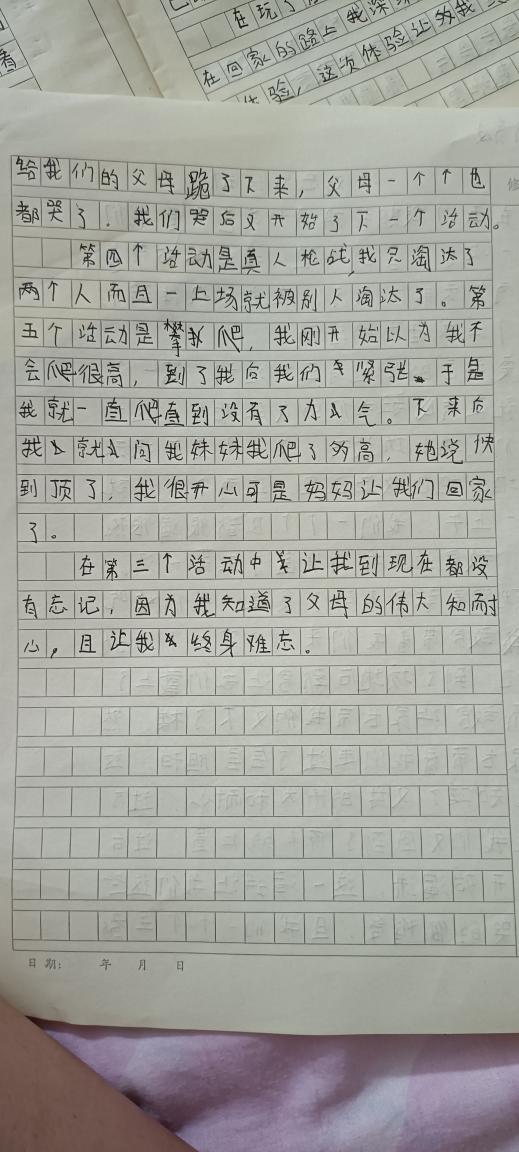 在玩了
在回家的路上我深
体验，这次体验让我
看
给我们的父母跪了下来，父母一个个也
都哭了．我们哭后又开始了下一个活动。
第四个活动是真人枪战，我只淘汰了
两个人而且一上场就被别人淘汰了。第
五个活动是攀爬，我刚开始以为我不
会爬很高，到了我后我们紧张．于是
我就一直爬直到没有了力气。下来后
我就问我妹妹我爬了多高，她说快
到顶了，我很开心可是妈妈让我们回家
了。
在第三个活动中让我到现在都没
有忘记，因为我知道了父母的伟大和耐
心，且让我终身难忘。
日期： 年 月 日